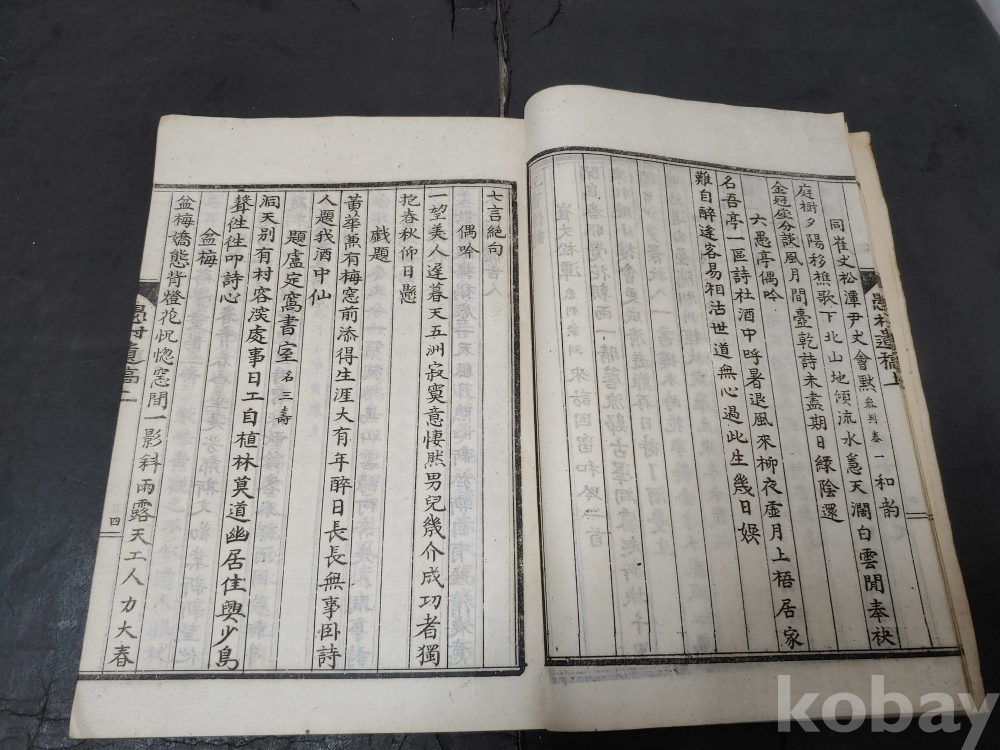 同崔丈松潭尹丈會默叅判泰一和韵
庭樹夕陽移樵歌下北山地傾流水急天濶白雲閒奉袂
金冠座分談風月間臺乾詩未盡期日綠陰還
六愚亭偶吟
名吾亭一區詩社酒中呼暑退風來柳夜虛月上梧居家
難自醉逢客易相沽世道無心過此生幾日娛
愚村遺稿上
七言絕句
偶吟
一望美人遲暮天五洲寂寞意悽然男兒幾介成功者獨
把春秋仰日懸
戱題
黃華兼有梅窓前添得生涯大有年醉日長長無事卧詩
人題我酒中仙
題盧定窩書室名三壽
洞天別有村容深處事日工自植林莫道幽居佳興少鳥
聲往往叩詩心
盆梅
盆梅嬌態背燈花怳惚窓間一影斜雨露天工人力大春
愚村遺稿上
四
kobay